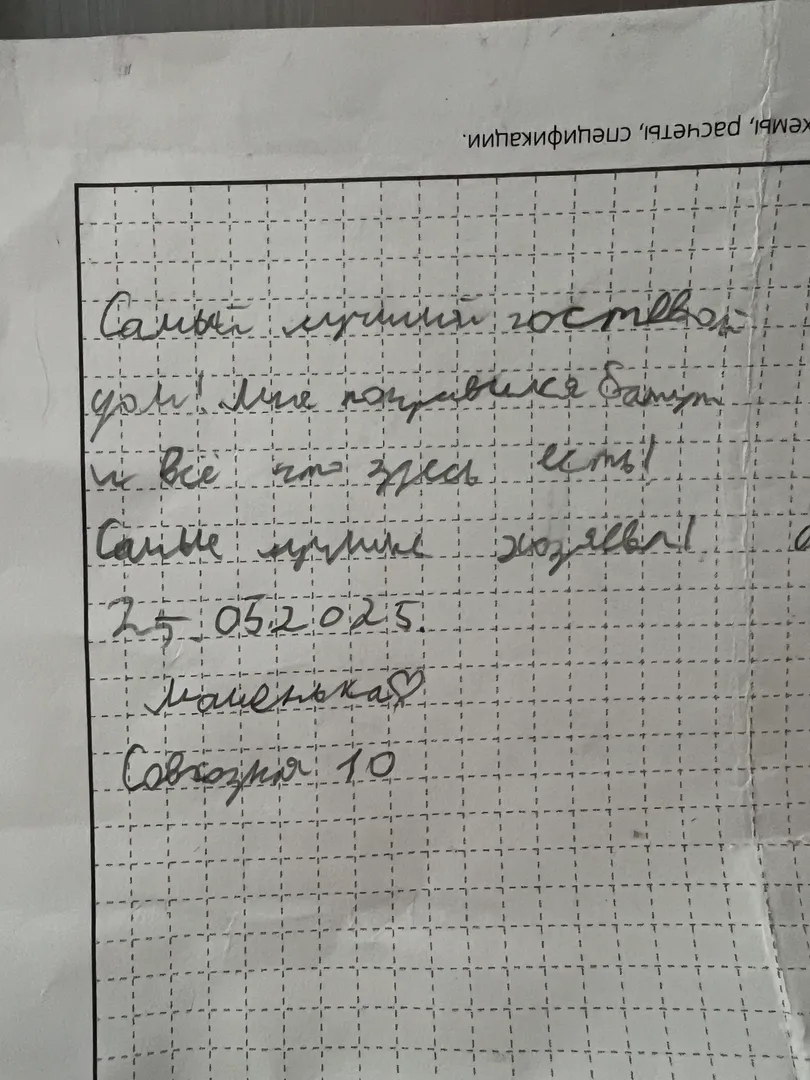 хемы, расчеты, спецификации.
Самый лучший гостевой
дом! Мне понравился батут
и всё что здесь есть!
Самые лучшие хозяева!
25.05.2025.
Машенька♡
Совхозная 10